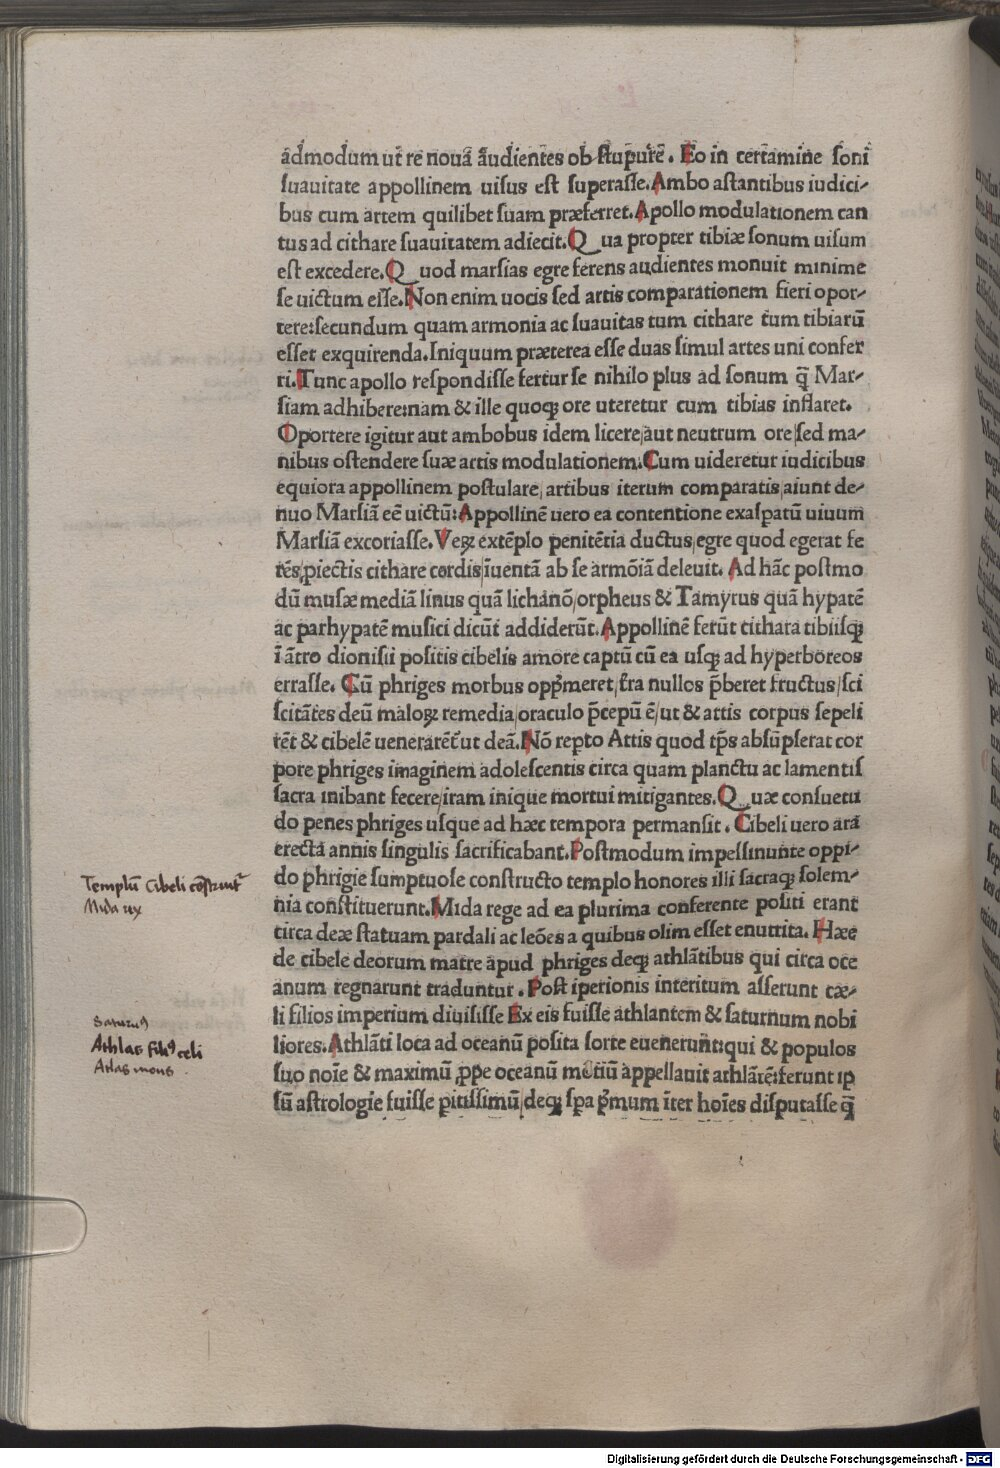 admodum ut re nouã audientes obstupuꝛẽ. Eo in certamine soni
suauitate appollinem uisus est superasse. Ambo astantibus iudici-
bus cum artem quilibet suam præferret. Apollo modulationem can
tus ad cithare suauitatem adiecit. Qua propter tibiæ sonum uisum
est excedere. Quod marsias egre ferens audientes monuit minime
se uictum esse. Non enim uocis sed artis comparationem fieri opor-
tere: secundum quam armonia ac suauitas tum cithare tum tibiarũ
esset exquirenda. Iniquum præterea esse duas simul artes uni confer
ri. Tunc apollo respondisse fertur se nihilo plus ad sonum q̃ Mar-
siam adhibere: nam & ille quoqꝫ ore uteretur cum tibias inflaret.
Oportere igitur aut ambobus idem licere/aut neutrum ore/sed ma-
nibus ostendere suæ artis modulationem. Cum uideretur iudicibus
equiora appollinem postulare/artibus iterum comparatis/aiunt de-
nuo Marsiã eẽ uictũ: Appollinẽ uero ea contentione exasꝑatũ uiuum
Marsiã excoriasse. Veꝝ extẽplo penitẽtia ductus/egre quod egerat fe
rẽs ꝓiectis cithare cordis/iuentã ab se armõiã deleuit. Ad hãc postmo
dũ musæ mediã linus quã lichanõ/orpheus & Tamyrus quã hypatẽ
ac parhypatẽ musici dicũt addiderũt. Appollinẽ ferũt cithara tibiisqꝫ
ĩ ãtro dionisii positis cibelis amore captũ cũ ea usqꝫ ad hyperboreos
errasse. Cũ phriges morbus opp̃meret/t̃ra nullos p̃beret fructus/sci
scitãtes deũ maloꝝ remedia/oraculo p̃cepũ ẽ/ut & attis corpus sepeli
rẽt & cibelẽ uenerarẽt̃ ut deã. Nõ reꝑto Attis quod tp̃s absũpserat cor
pore phriges imaginem adolescentis circa quam planctu ac lamentis
sacra inibant fecere/iram inique mortui mitigantes. Quæ consuetu
do penes phriges usque ad hæc tempora permansit. Cibeli uero ara
erecta annis singulis sacrificabant. Postmodum impessinunte oppi-
do phrigie sumptuose constructo templo honores illi sacraqꝫ solem-
nia constituerunt. Mida rege ad ea plurima conferente positi erant
circa deæ statuam pardali ac leões a quibus olim esset enutrita. Hæc
de cibele deorum matre apud phriges deqꝫ athlãtibus qui circa oce
anum regnarunt traduntur. Post iperionis interitum asserunt cæ-
li filios imperium diuisisse Ex eis fuisse athlantem & saturnum nobi
liores. Athlãti loca ad oceanũ posita sorte euenerunt: qui & populos
suo noĩe & maximũ ꝓpe oceanũ mõtiũ appellauit athlãtẽ: ferunt ip
sũ astrologie fuisse ꝑitissimũ/deqꝫ spa p̃mum ĩter hoĩes disputasse q̃
Templũ Cibeli cõstruit̃
Mida rex
Saturnꝰ
Athlas filiꝰ celi
Atlas mons
Digitalisierung gefördert durch die Deutsche Forschungsgemeinschaft - DFG